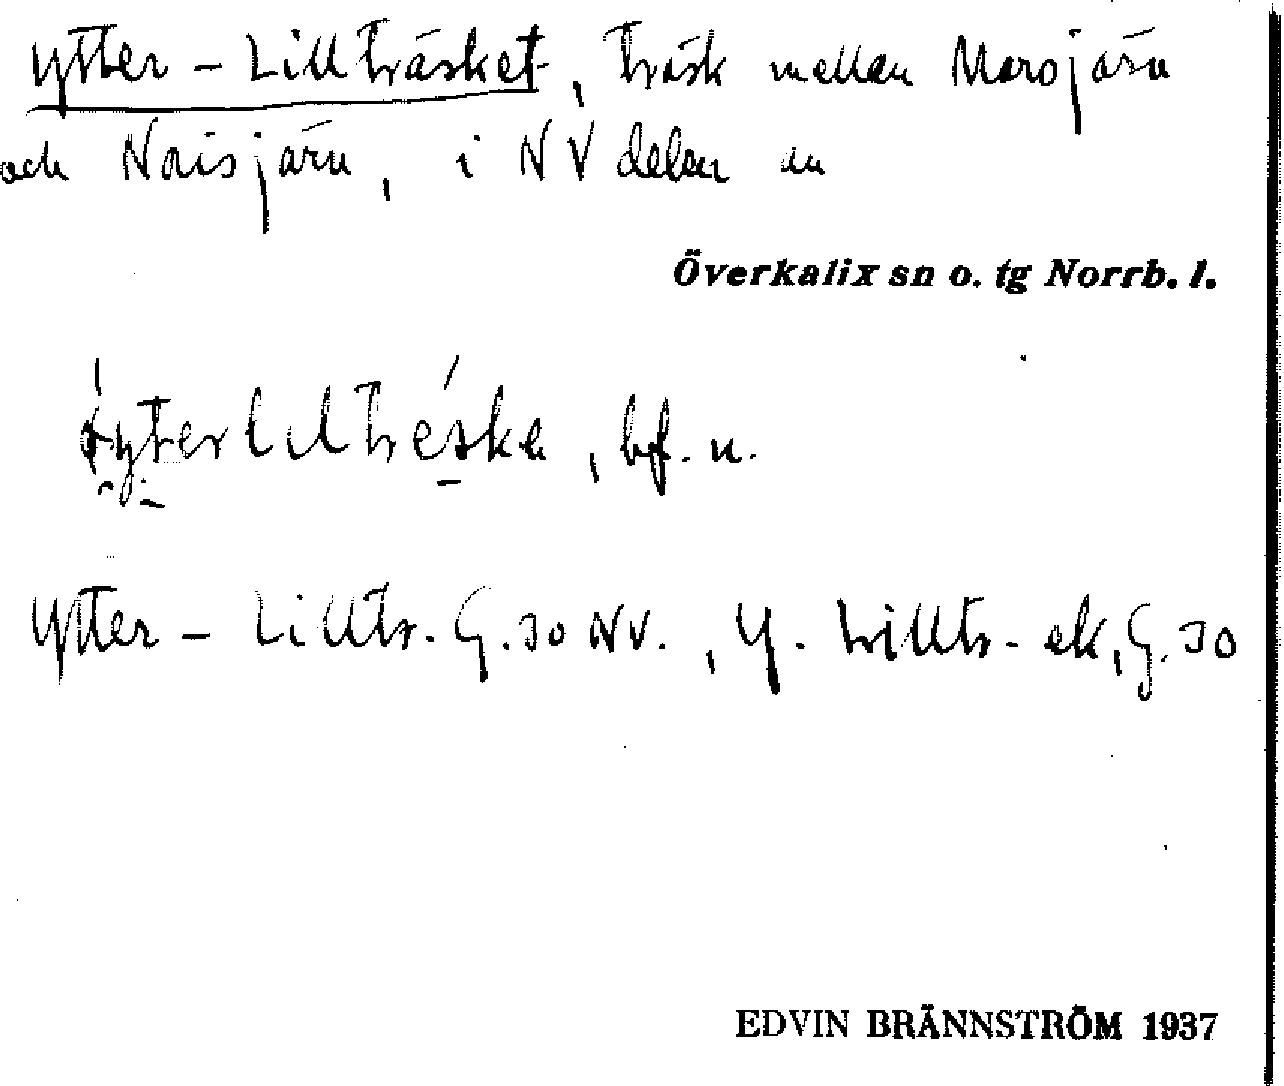 Ytter-Lillträsket, träsk mellan Marsjärv
och Naisjärv, i NV delen av
Överkalix sn o. tg Norrb. l.
bf. n.
Ytter-Lilltr. G. 30 NV., Y. Lilltr-ek, G. 30
EDVIN BRÄNNSTRÖM 1937